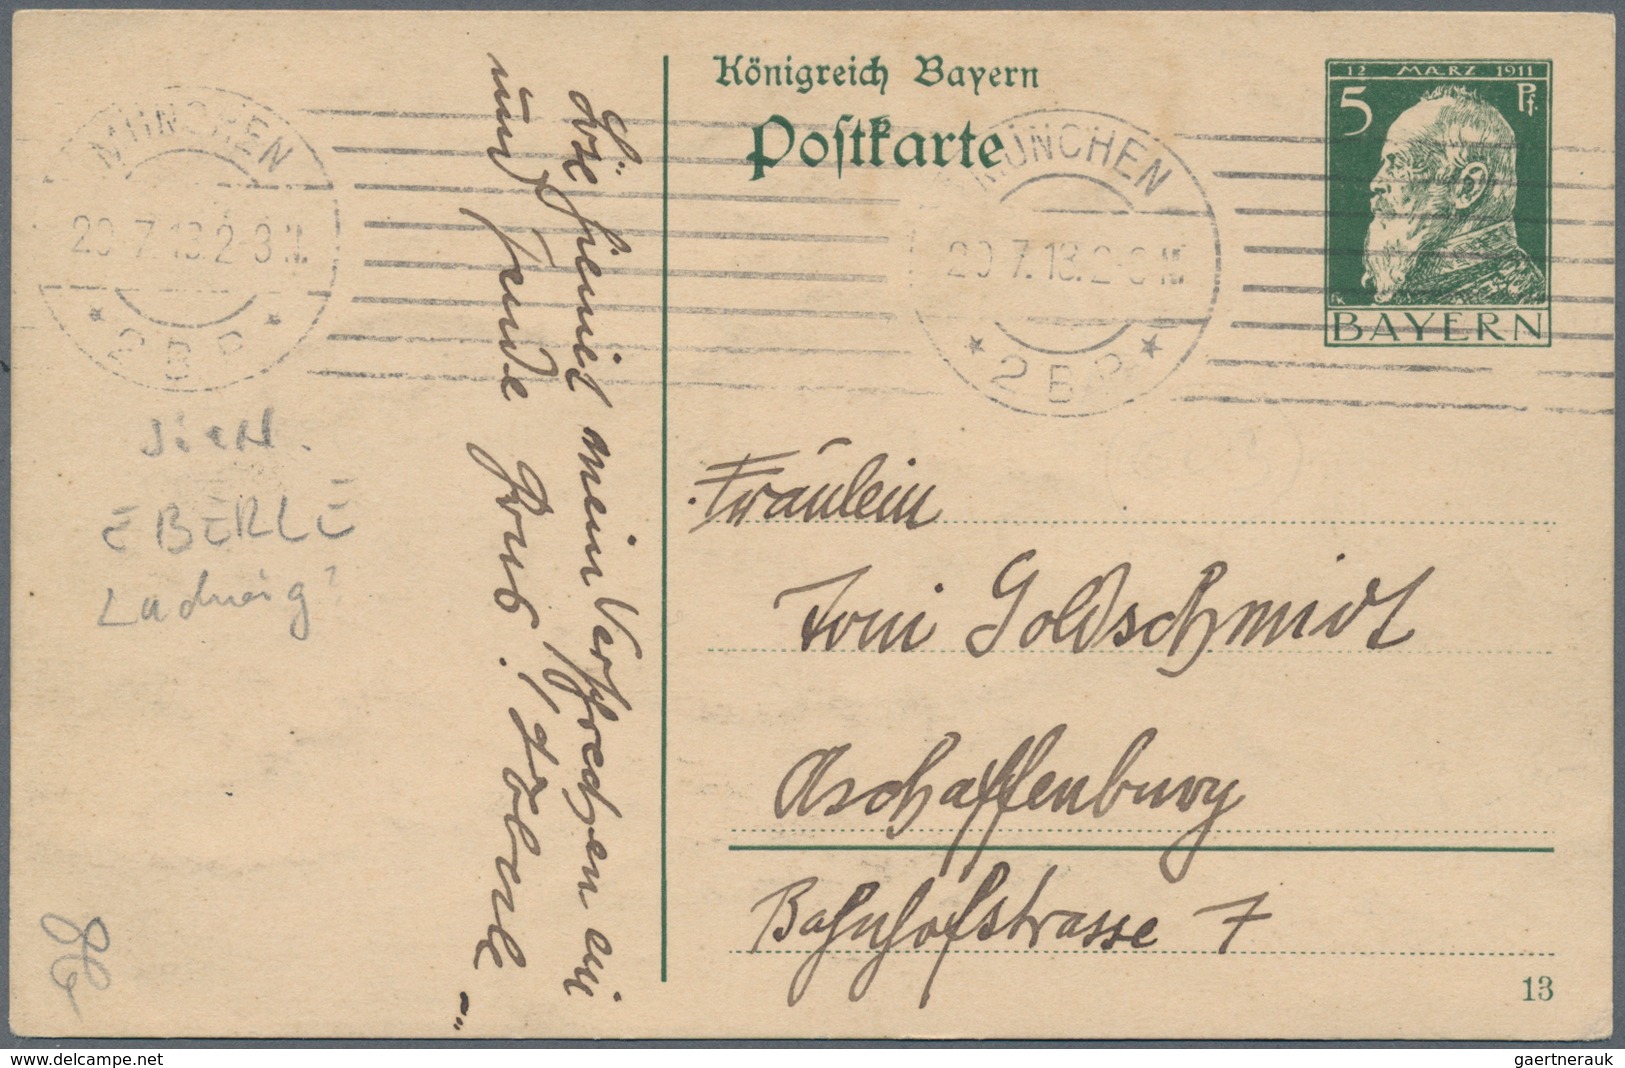 Königreich Bayern
Postkarte
12 MÄRZ 1911
5 Pf.
BAYERN
MÜNCHEN
20.7.13.2-3 N.
* 2 B P *
MÜNCHEN
20.7.13.2-3 N.
* 2 B P *
Löse hiemit mein Versprechen ein
und sende Grus!
Fräulein
Toni Goldschmidt
Aschaffenburg
Bahnhofstrasse 7
13
sign.
EBERLE
Ludwig?
gaertnerauk